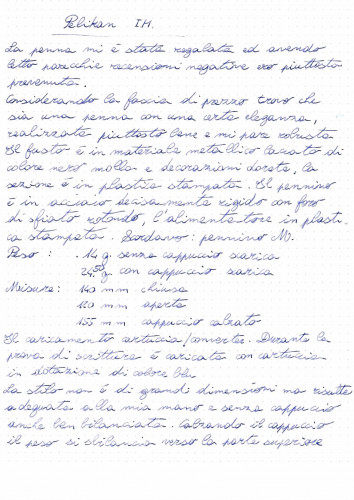 Pelikan I.M.
La penna mi è stata regalata ed avendo
letto parecchie recensioni negative ero piuttosto
prevenuto.
Considerando la fascia di prezzo trovo che
sia una penna con una certa eleganza,
realizzata piuttosto bene e mi pare robusta
Il fusto è in materiale metallico laccato di
colore nero molla e decorazioni dorate, la
sezione è in plastica stampata. Il pennino
è in acciaio decisamente rigido con foro
di sfiato rotondo, l'alimentatore in plasti-
ca stampata. : pennino M).
Peso : 14 g. senza cappuccio carica
24,50 g. con cappuccio carica
Misure: 140 mm chiusa
120 mm aperta
155 mm cappuccio calzato
Il caricamento cartuccia/converter. Durante la
prova di scrittura è caricata con cartuccia
in dotazione di colore blu.
La stilo non è di grandi dimensioni ma risulta
adeguata alla mia mano e senza cappuccio
anche ben bilanciata. Calzando il cappuccio
il peso si sbilancia verso la parte superiore